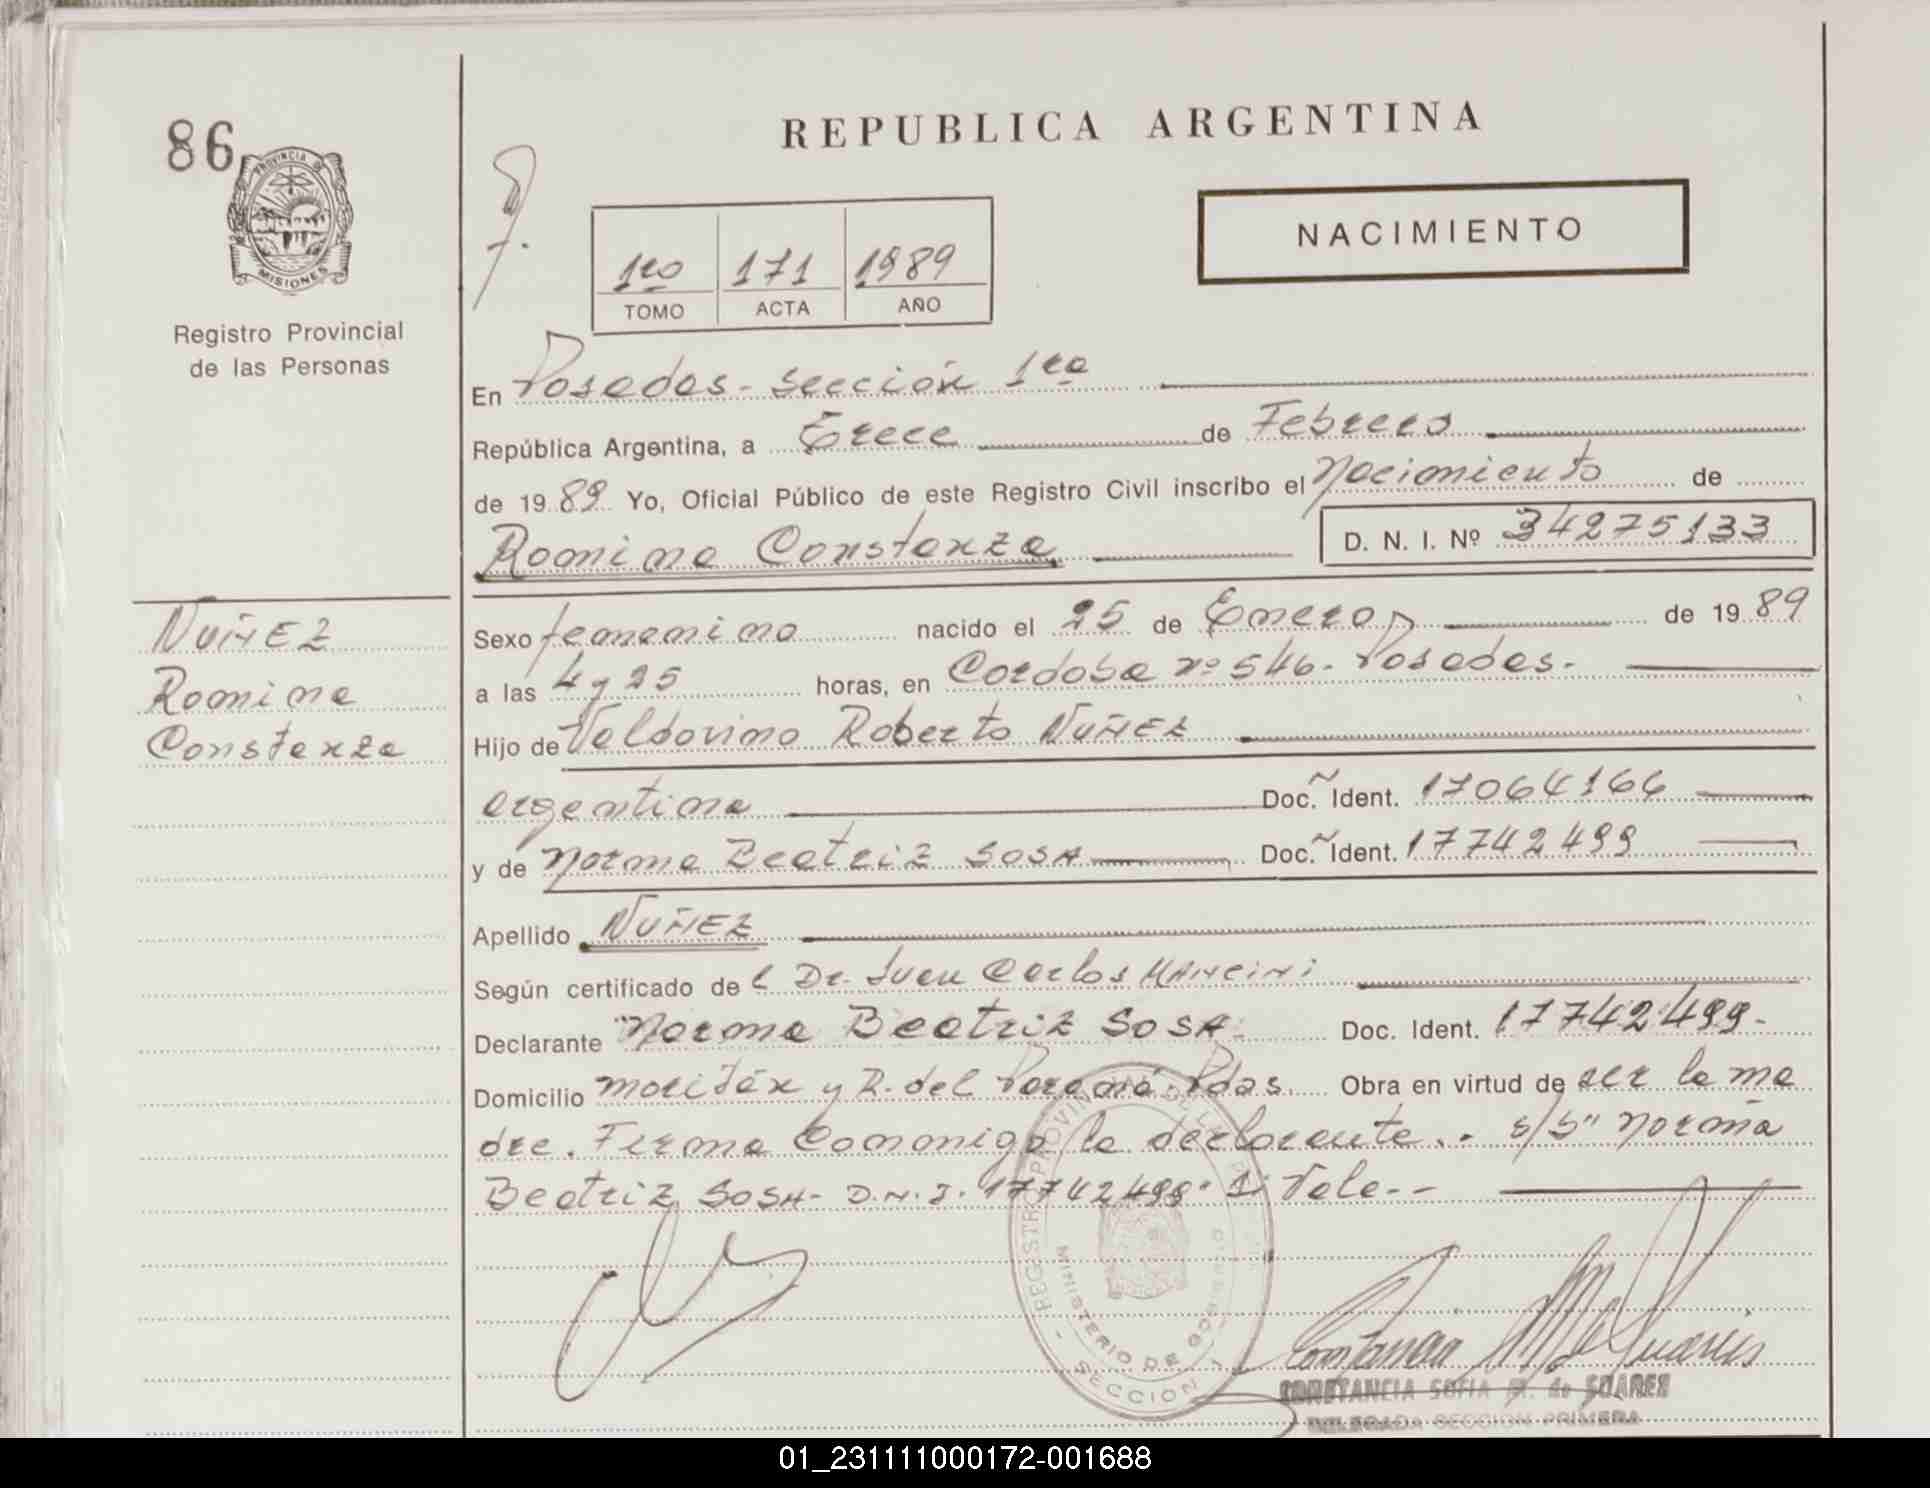 86
PROVINCIA DE
MISIONES
Registro Provincial
de las Personas
NUÑEZ
Romina
Constanza
REPUBLICA ARGENTINA
NACIMIENTO
1ro 171 1989
TOMO ACTA AÑO
En Posadas - Sección 1ra
República Argentina, a Trece de Febrero
de 1989 Yo, Oficial Público de este Registro Civil inscribo el Nacimiento de
Romina Constanza D. N. I. Nº 34275133
Sexo femenino nacido el 25 de Enero de 1989
a las 4 y 25 horas, en Cordoba nº 546 - Posadas.
Hijo de Valdovino Roberto NUÑEZ
argentina Doc. Ident. 17064166
y de Norma Beatriz SOSA Doc. Ident. 17742499
Apellido NUÑEZ
Según certificado del Dr. Juan Carlos MANCINI
Declarante Norma Beatriz SOSA Doc. Ident. 17742499-
Domicilio y R. del Paraná Pdas. Obra en virtud de ser la ma
dre. Firma Conmigo la declarante.. Norma
Beatriz SOSA - D.N.I. 17742499 Vale.-
REGISTRO PROVINCIAL DE LAS
MINISTERIO DE GOBIERNO
SECCION 1
CONSTANCIA SOFIA M. de SUAREZ
DELEGADA SECCION PRIMERA
01_231111000172-001688